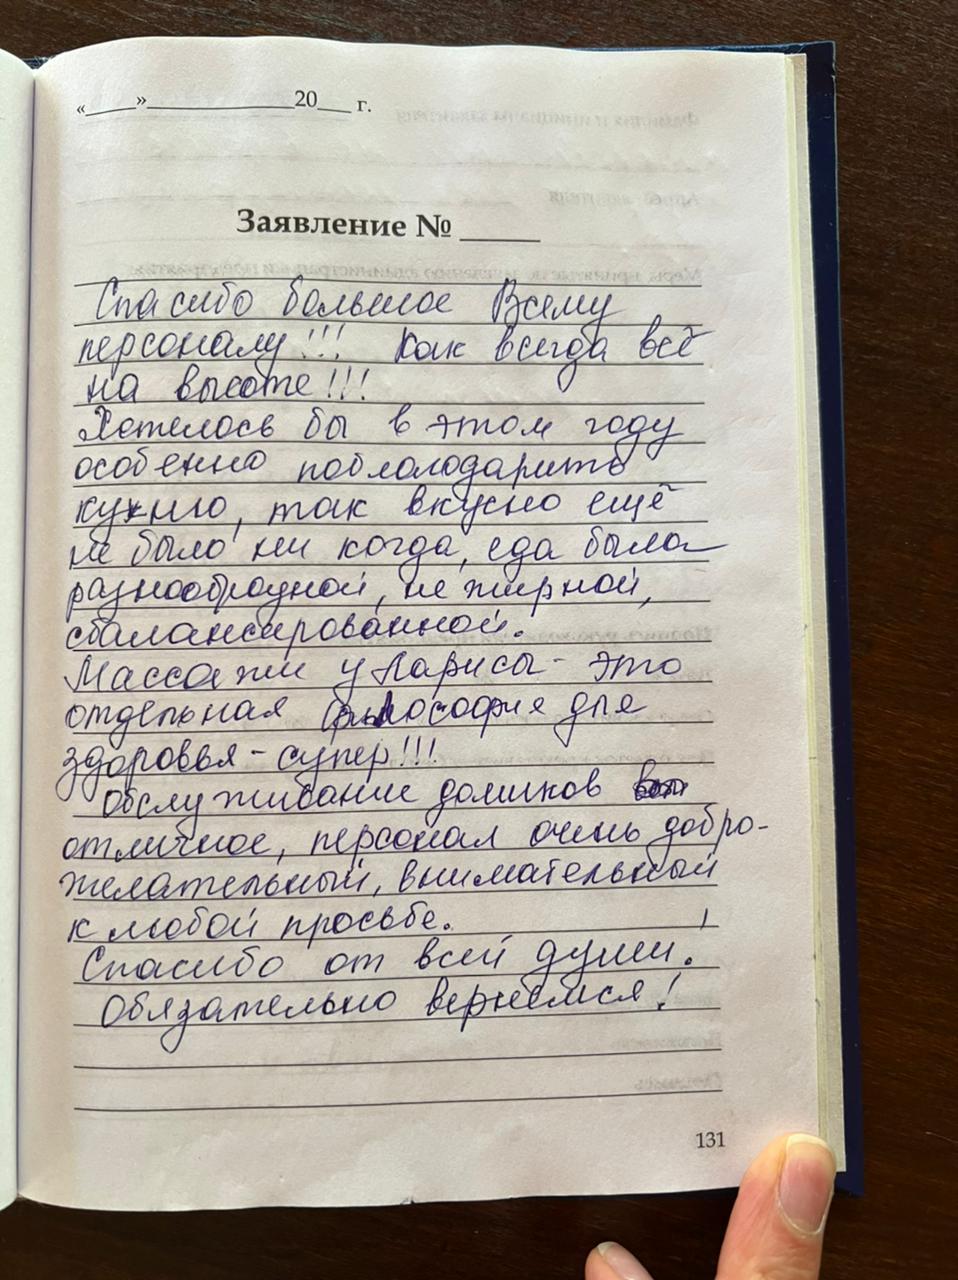 «____»____________20___ г.
Заявление № _____
Спасибо большое Всему
персоналу!!! Как всегда всё
на высоте!!!
Хотелось бы в этом году
особенно поблагодарить
кухню, так вкусно ещё
не было ни когда, еда была
разнообразной, не жирной,
сбалансированной.
Массажи у Ларисы - это
отдельная философия для
здоровья - супер!!!
Обслуживание домиков
отличное, персонал очень добро-
желательный, внимательный
к любой просьбе.
Спасибо от всей души!
Обязательно вернёмся!
131